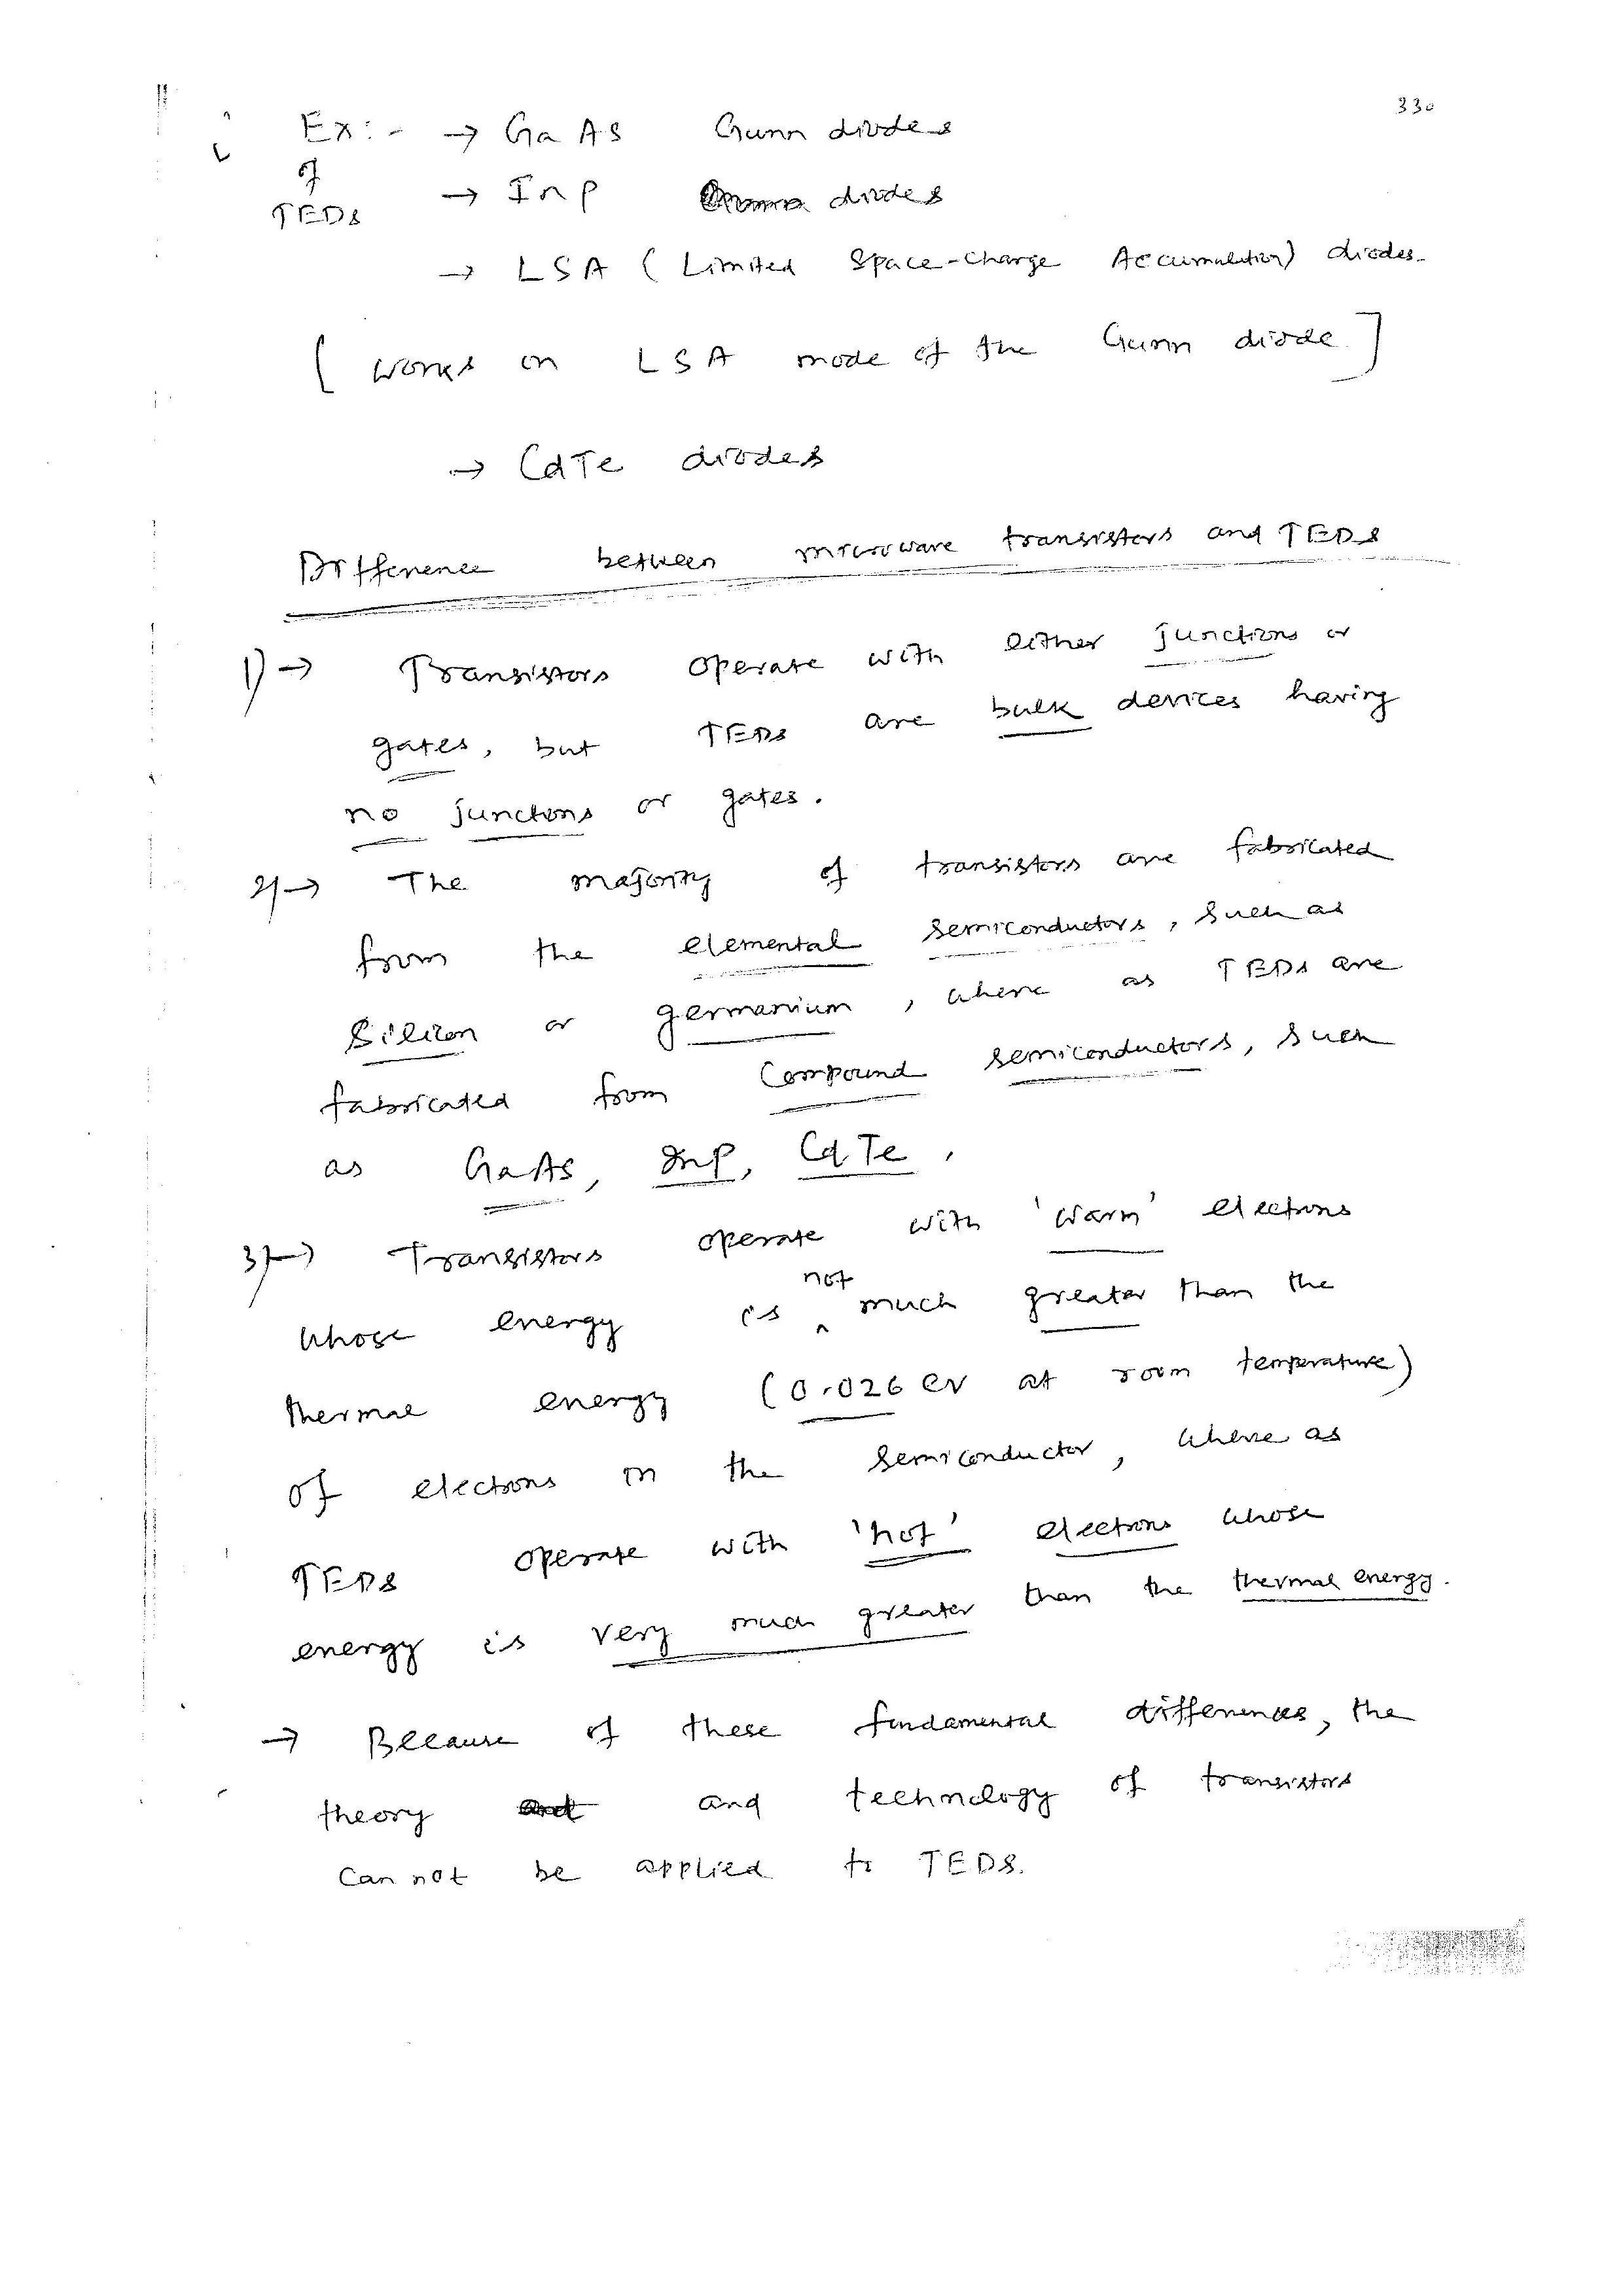 330
Ex:- → GaAs Gunn diodes
of
TEDs → InP diodes
→ LSA (Limited Space-Charge Accumulation) diodes.
[works on LSA mode of the Gunn diode]
→ CdTe diodes
Difference between microwave transistors and TEDs
1) → Transistors operate with either junctions or
gates, but TEDs are bulk devices having
no junctions or gates.
2) → The majority of transistors are fabricated
from the elemental semiconductors, such as
Silicon or germanium, where as TEDs are
fabricated from Compound semiconductors, such
as GaAs, InP, CdTe.
3) → Transistors operate with 'warm' electrons
whose energy is not much greater than the
thermal energy (0.026 eV at room temperature)
of electrons in the semiconductor, where as
TEDs operate with 'hot' electrons whose
energy is very much greater than the thermal energy.
→ Because of these fundamental differences, the
theory and technology of transistors
Can not be applied to TEDS.